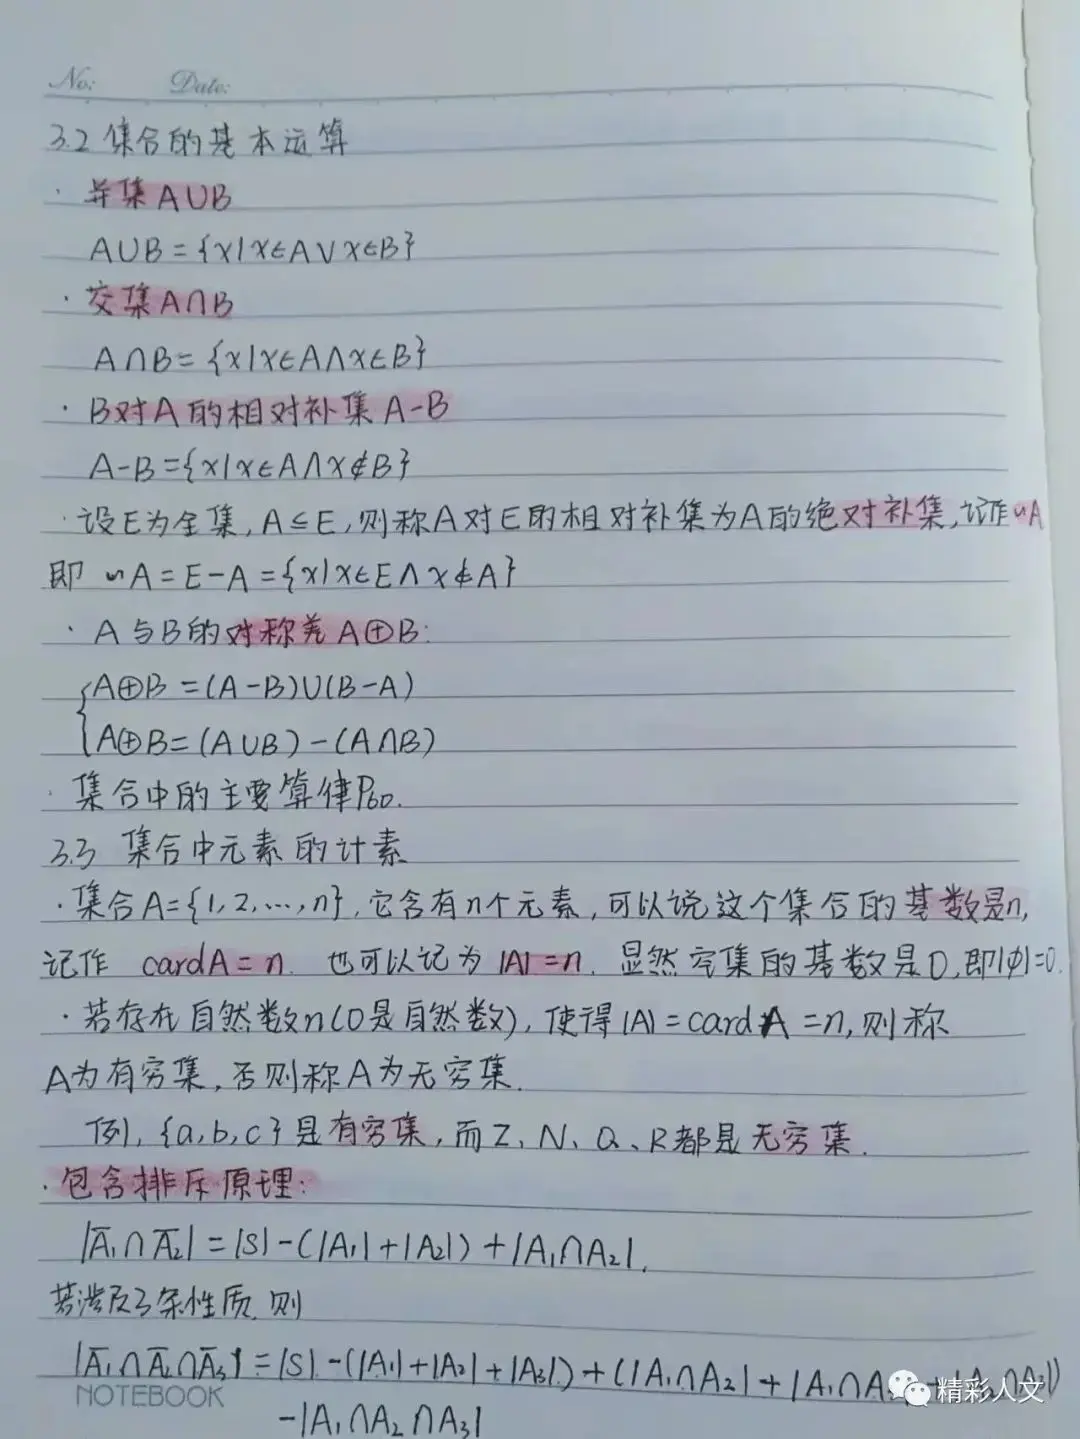 No: Date:
3.2 集合的基本运算
· 并集A∪B
A∪B={x|x∈A∨x∈B}
· 交集A∩B
A∩B={x|x∈A∧x∈B}
· B对A的相对补集A-B
A-B={x|x∈A∧x∉B}
· 设E为全集,A⊆E,则称A对E的相对补集为A的绝对补集,记作~A
即 ~A=E-A={x|x∈E∧x∉A}
· A与B的对称差A⊕B:
A⊕B=(A-B)∪(B-A)
A⊕B=(A∪B)-(A∩B)
· 集合中的主要算律P60.
3.3 集合中元素的计素
· 集合A={1,2,…,n},它含有n个元素,可以说这个集合的基数是n,
记作 cardA=n. 也可以记为|A|=n. 显然空集的基数是0,即|φ|=0.
· 若存在自然数n(0是自然数),使得|A|=cardA=n,则称
A为有穷集,否则称A为无穷集.
例,{a,b,c}是有穷集,而Z、N、Q、R都是无穷集.
· 包含排斥原理:
|A̅₁∩A̅₂|=|S|-(|A₁|+|A₂|)+|A₁∩A₂|.
若涉及3条性质,则
|A̅₁∩A̅₂∩A̅₃|=|S|-(|A₁|+|A₂|+|A₃|)+(|A₁∩A₂|+|A₁∩A
-|A₁∩A₂∩A₃|
NOTEBOOK
精彩人文